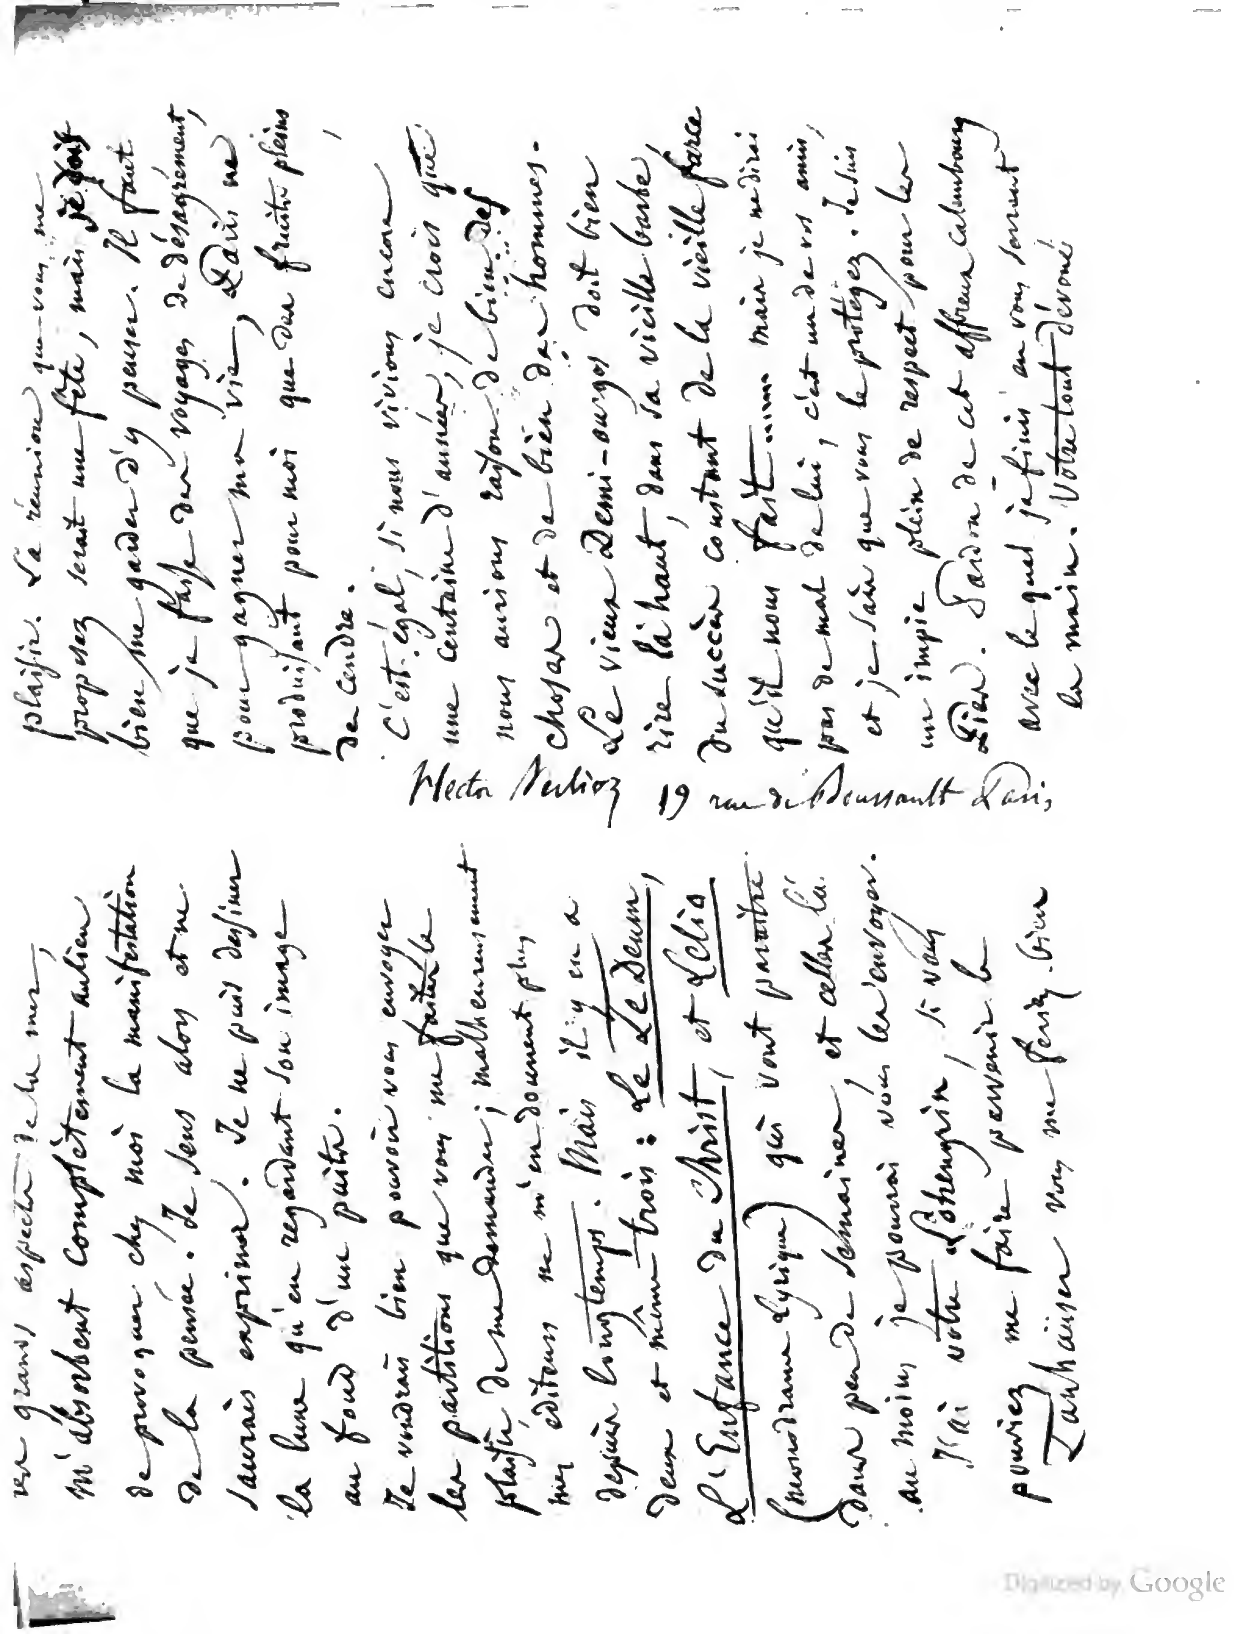 ces grands aspects de la mer,
m'absorbent complètement au lieu
de provoquer chez moi la manifestation
de la pensée. Je sens alors et ne
saurais exprimer. Je ne puis dessiner
la lune qu'en regardant son image
au fond d'un puits.
Je voudrais bien pouvoir vous envoyer
les partitions que vous me faites le
plaisir de me demander; malheureusement
mes editeurs ne m'en donnent plus
depuis longtemps. Mais il y en a
deux et même trois: Le Te Deum,
L'Enfance du Christ, et Lelio
(monodrame Lyrique) qui vont paraître
dans peu de semaines, et celles là
au moins je pourrai vous les envoyer.
J'ai votre Lohengrin, si vous
pouviez me faire parvenir le
Tanhaüser vous me feriez bien
plaisir. La réunion que vous me
proposez serait une fête, mais je dois
bien me garder d'y penser. Il faut
que je fasse des voyages de désagrément,
pour gagner ma vie, Paris ne
produisant pour moi que des fruits pleins
de cendre.
C'est égal, si nous vivions encore
une centaine d'années, je crois que
nous aurions raison de bien des
choses et de bien des hommes.
Le vieux Demi-ourgos doit bien
rire là haut, dans sa vieille barbe,
du succès constant de la vieille farce
qu'il nous fait...... mais je ne dirai
pas de mal de lui, c'est un de vos amis,
et je sais que vous le protégez. Je suis
un impie plein de respect pour les
Pies. Pardon de cet affreux calembourg
avec lequel je finis en vous serrant
la main. Votre tout dévoué
Hector Berlioz 19 rue de Boursault Paris,
Digitized by Google